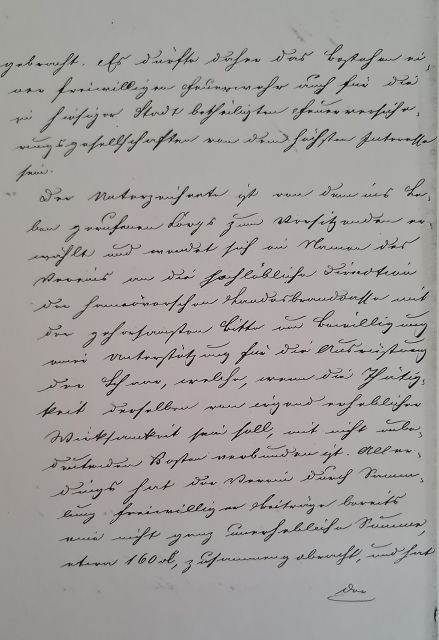 gebracht. Es dürfte daher das Bestehen ei-
ner freiwilligen Feuerwehr auch für die
in hiesiger Stadt betheiligten Feuerversiche-
rungsgesellschaften von dem höchsten Interesse
sein.
Der Unterzeichnete ist von dem ins Le-
ben gerufenen Corps zum Vorsitzenden er-
wählt und wendet sich im Namen des
Vereins an die hochlöbliche Direction
der hannoverschen Landesbrandkasse mit
der gehorsamsten Bitte um Bewilligung
einer Unterstützung für die Ausrüstung
der Schaar, welche, wenn die Thätig-
keit derselben von irgend erheblicher
Wirksamkeit sein soll, mit nicht unbe-
deutenden Kosten verbunden ist. Aller-
dings hat der Verein durch Samm-
lung freiwilliger Beiträge bereits
eine nicht ganz unerhebliche Summe,
etwa 160 rl, zusammengebracht, und hat
der